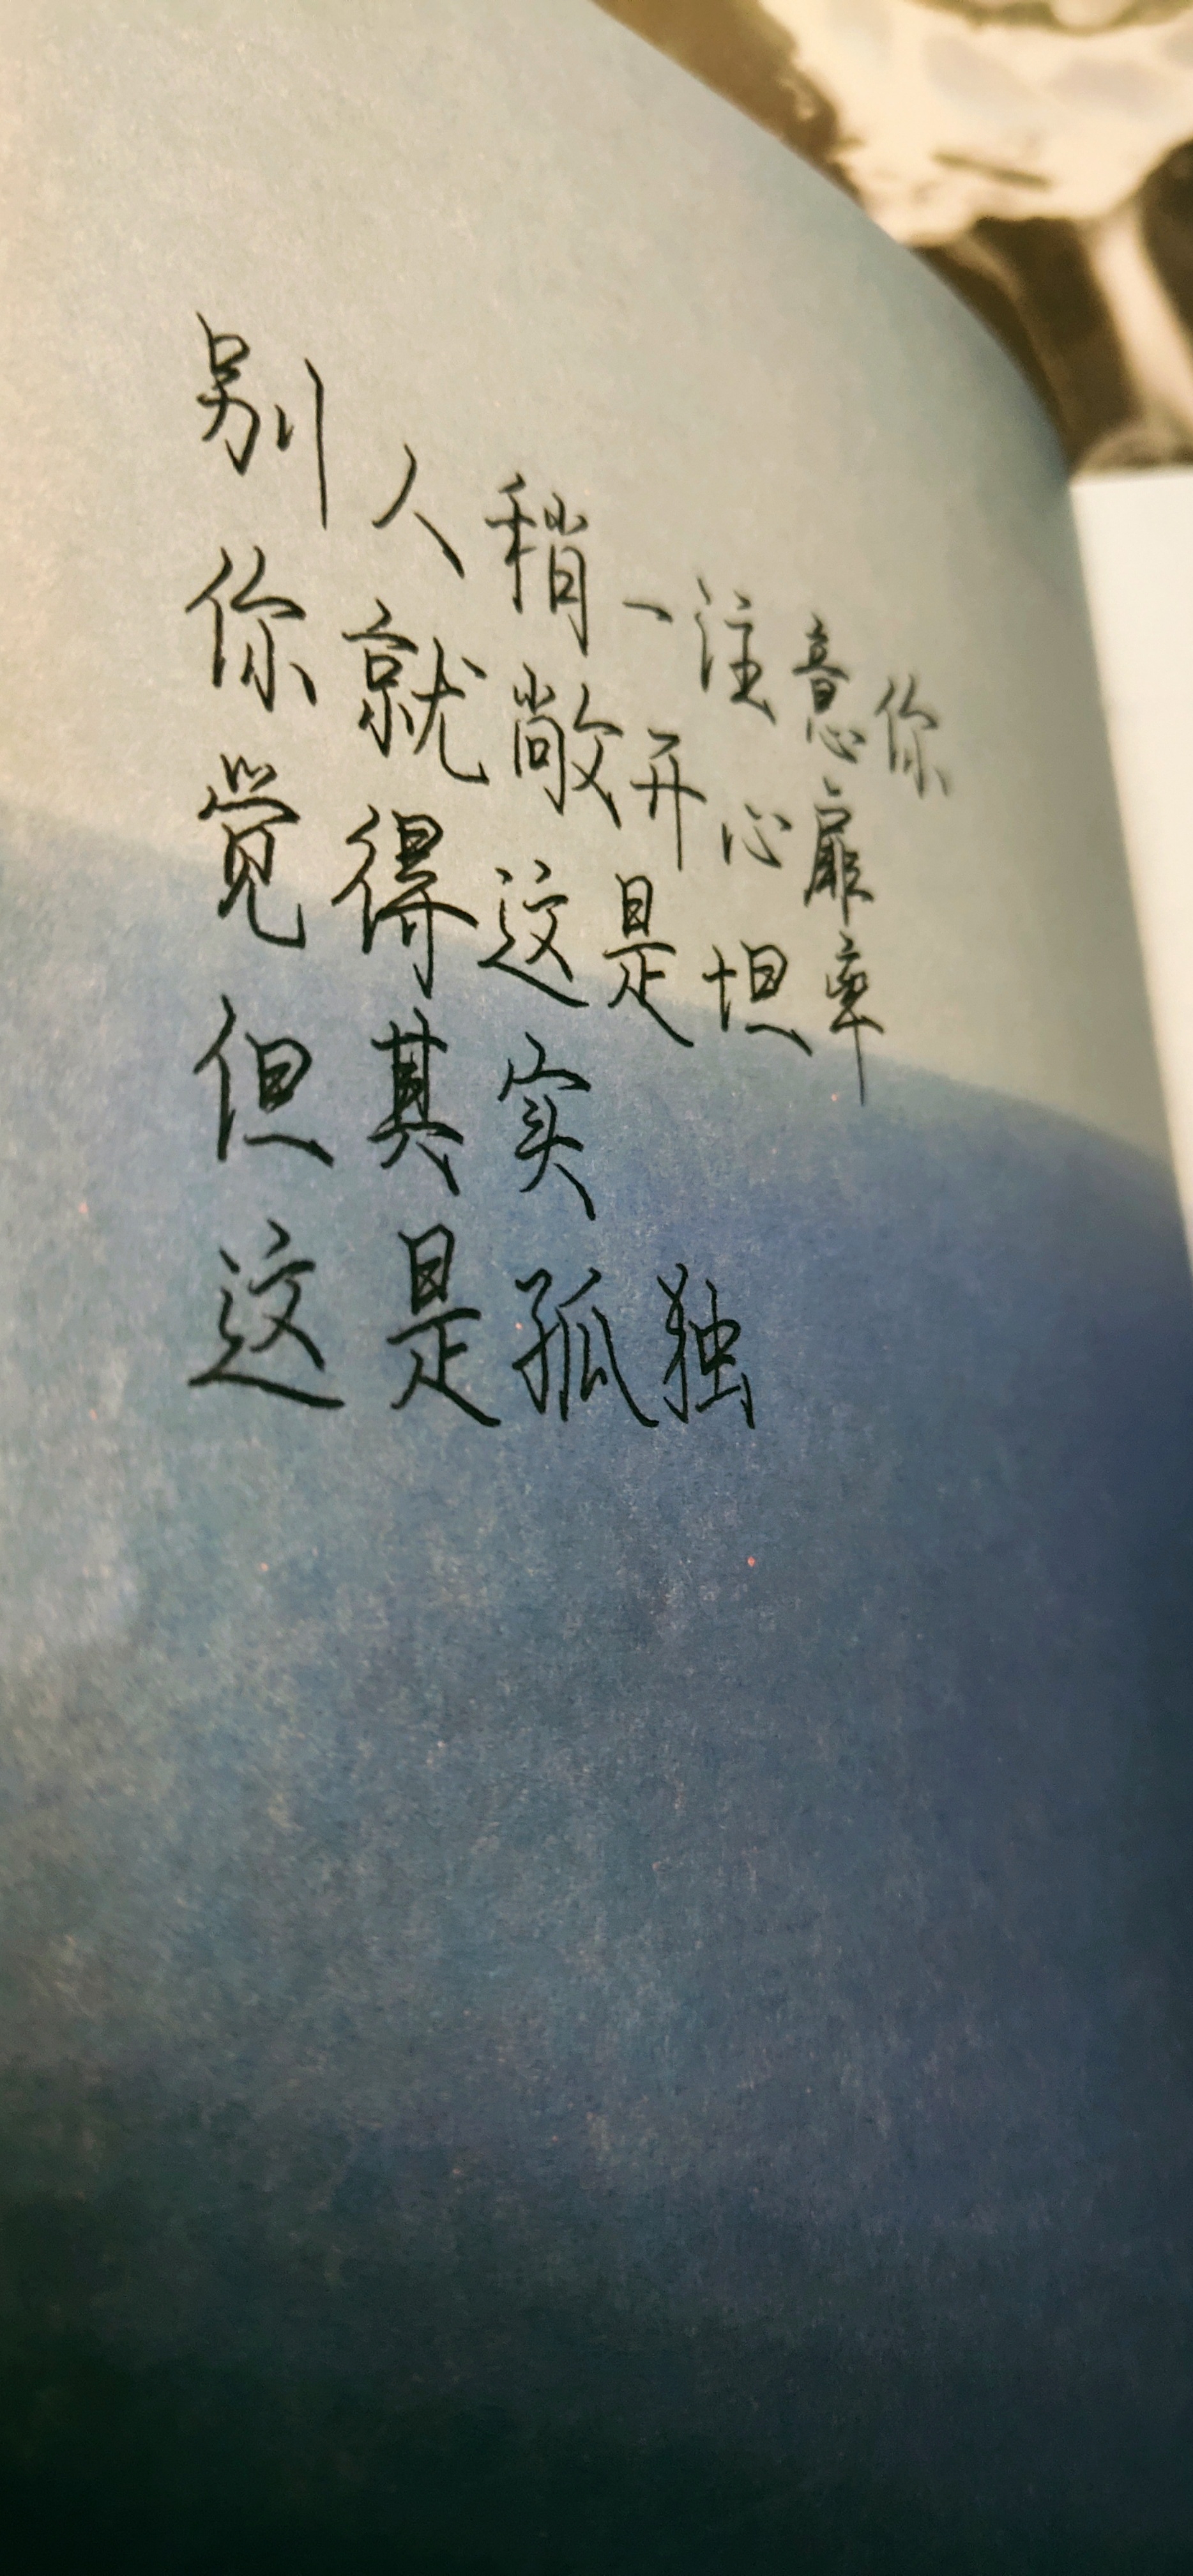 别人稍一注意你
你就敞开心扉
觉得这是坦率
但其实
这是孤独